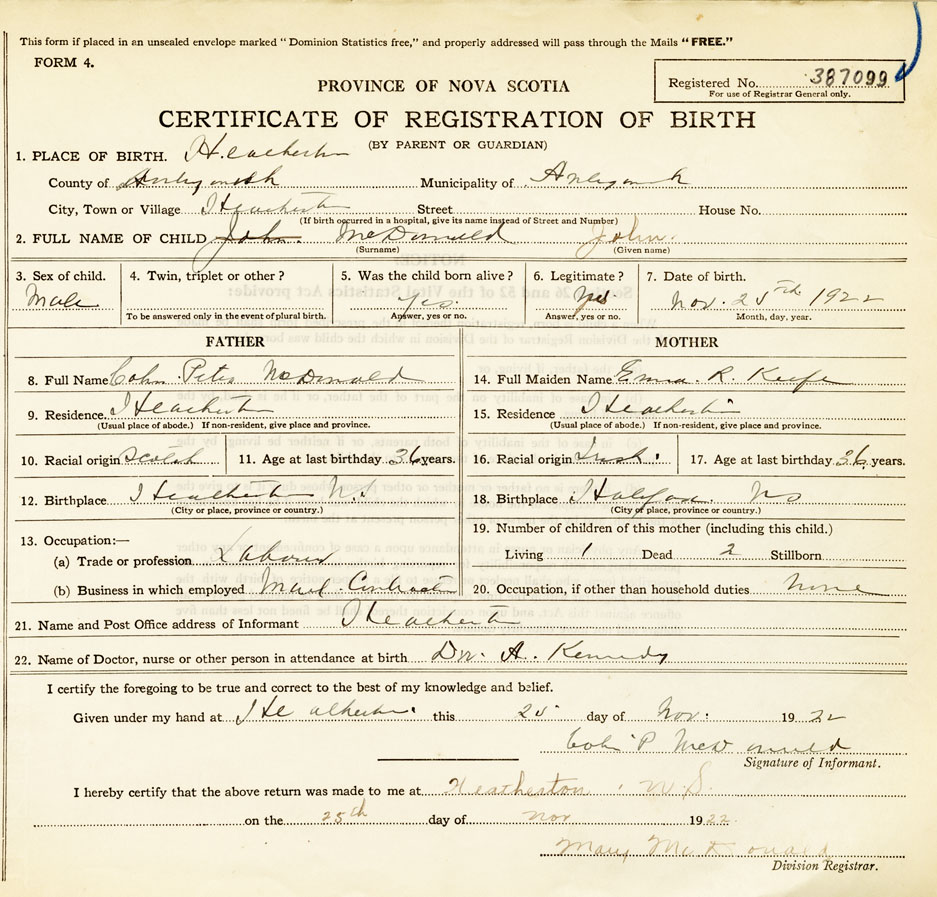 This form if placed in an unsealed envelope marked "Dominion Statistics free," and properly addressed will pass through the Mails "FREE."
FORM 4.
PROVINCE OF NOVA SCOTIA
Registered No. 387099
For use of Registrar General only.
CERTIFICATE OF REGISTRATION OF BIRTH
(BY PARENT OR GUARDIAN)
1. PLACE OF BIRTH. Heatherton
County of Antigonish Municipality of Antigonish
City, Town or Village Heatherton Street House No.
(If birth occurred in a hospital, give its name instead of Street and Number)
2. FULL NAME OF CHILD John. McDonald John.
(Surname) (Given name)
3. Sex of child. 4. Twin, triplet or other? 5. Was the child born alive? 6. Legitimate? 7. Date of birth.
Male yes. Yes Nov. 25th 1922
To be answered only in the event of plural birth. Answer, yes or no. Answer, yes or no. Month, day, year.
FATHER
8. Full Name Colin Peter McDonald
9. Residence. Heatherton
(Usual place of abode.) If non-resident, give place and province.
10. Racial origin Scotch 11. Age at last birthday 36 years.
12. Birthplace Heatherton N.S.
(City or place, province or country.)
13. Occupation:—
(a) Trade or profession Labour
(b) Business in which employed Mail
MOTHER
14. Full Maiden Name Emma R. Keefe
15. Residence Heatherton
(Usual place of abode.) If non-resident, give place and province.
16. Racial origin Irish. 17. Age at last birthday 36 years.
18. Birthplace Halifax. NS
(City or place, province or country.)
19. Number of children of this mother (including this child.)
Living 1 Dead 2 Stillborn
20. Occupation, if other than household duties None
21. Name and Post Office address of Informant Heatherton
22. Name of Doctor, nurse or other person in attendance at birth Dr. A. Kennedy
I certify the foregoing to be true and correct to the best of my knowledge and belief.
Given under my hand at Heatherton. this 25 day of Nov. 1922
Colin P McDonald
Signature of Informant.
I hereby certify that the above return was made to me at Heatherton. N.S.
on the 25th day of Nov 1922
Mary McDonald
Division Registrar.